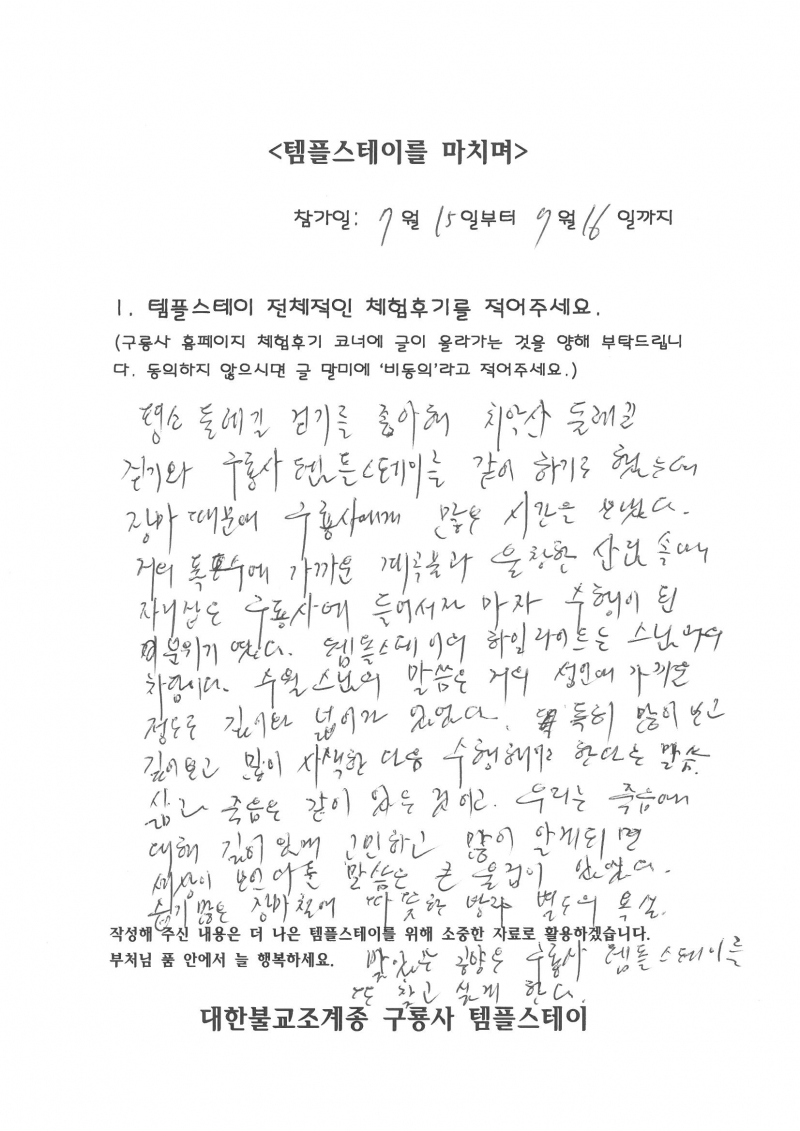 <템플스테이를 마치며>
참가일: 7월 15일부터 7월 16일까지
1. 템플스테이 전체적인 체험후기를 적어주세요.
(구룡사 홈페이지 체험후기 코너에 글이 올라가는 것을 양해 부탁드립니
다. 동의하지 않으시면 글 말미에 '비동의'라고 적어주세요.)
평소 둘레길 걷기를 좋아해 치악산 둘레길
걷기와 구룡사 템플스테이를 같이 하기로 했는데
장마 때문에 구룡사에게 많은 시간을 보냈다.
거의 폭포수에 가까운 계곡물과 울창한 산림 속에
자리잡은 구룡사에 들어서자 마자 수행이 된
분위기 였다. 템플스테이의 하일라이트는 스님과의
차담이다. 수월스님의 말씀은 거의 성인에 가까운
정도로 깊이와 넓이가 있었다. 특히 많이 보고
깊이보고 많이 사색한 다음 수행해야 한다는 말씀.
삶과 죽음은 같이 있는 것이고. 우리는 죽음에
대해 깊이 있게 고민하고 많이 알게되면
세상이 보인다는 말씀은 큰 울림이 있었다.
습기 많은 장마철에 따뜻한 방과 별도의 욕실.
작성해 주신 내용은 더 나은 템플스테이를 위해 소중한 자료로 활용하겠습니다.
부처님 품 안에서 늘 행복하세요.
맛있는 공양은 구룡사 템플스테이를
또 찾고 싶게 한다.
대한불교조계종 구룡사 템플스테이